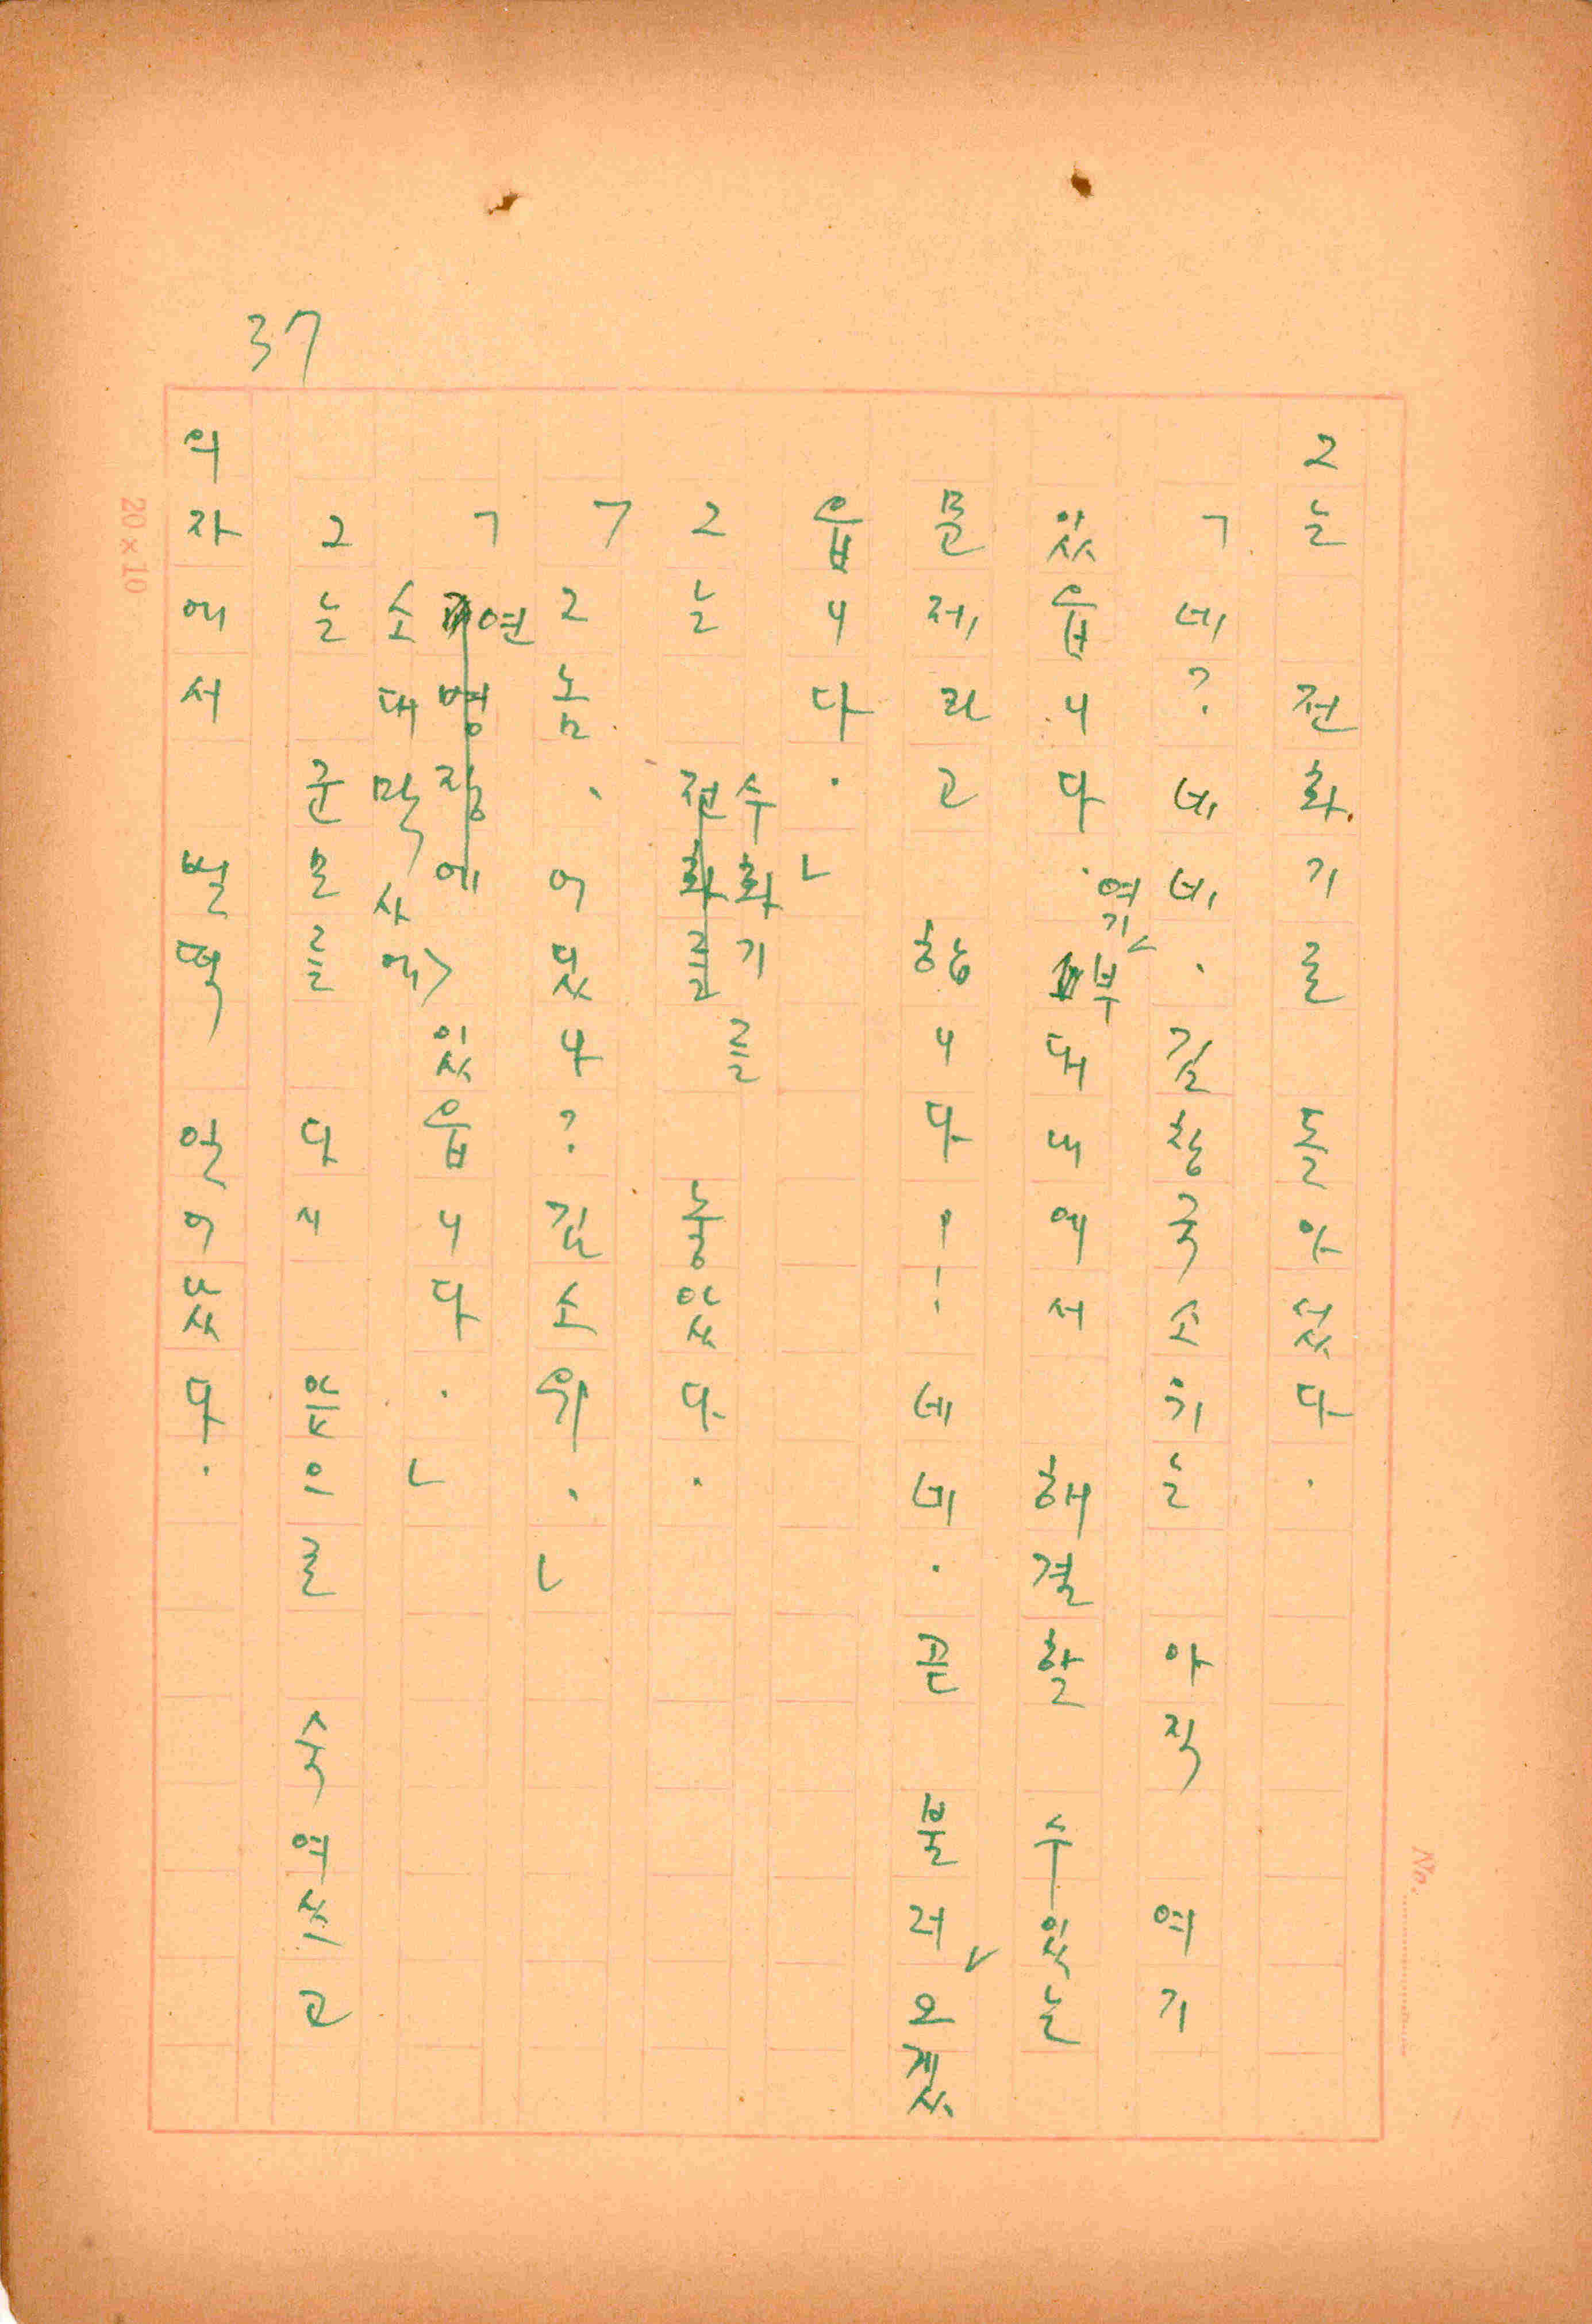 37
그는 전화기를 돌아섰다.
「네? 네네. 김창국소위는 아직 여기
있읍니다. 여기 부대내에서 해결할 수 있는
문제라고 합니다! 네네. 곧 불러오겠
읍니다.」
그는 수화기를 놓았다.
「그놈, 어딨나? 김소위.」
「소대막사에 있읍니다.」
그는 군모를 다시 앞으로 숙여쓰고
의자에서 벌떡 일어났다.
20×10
No.